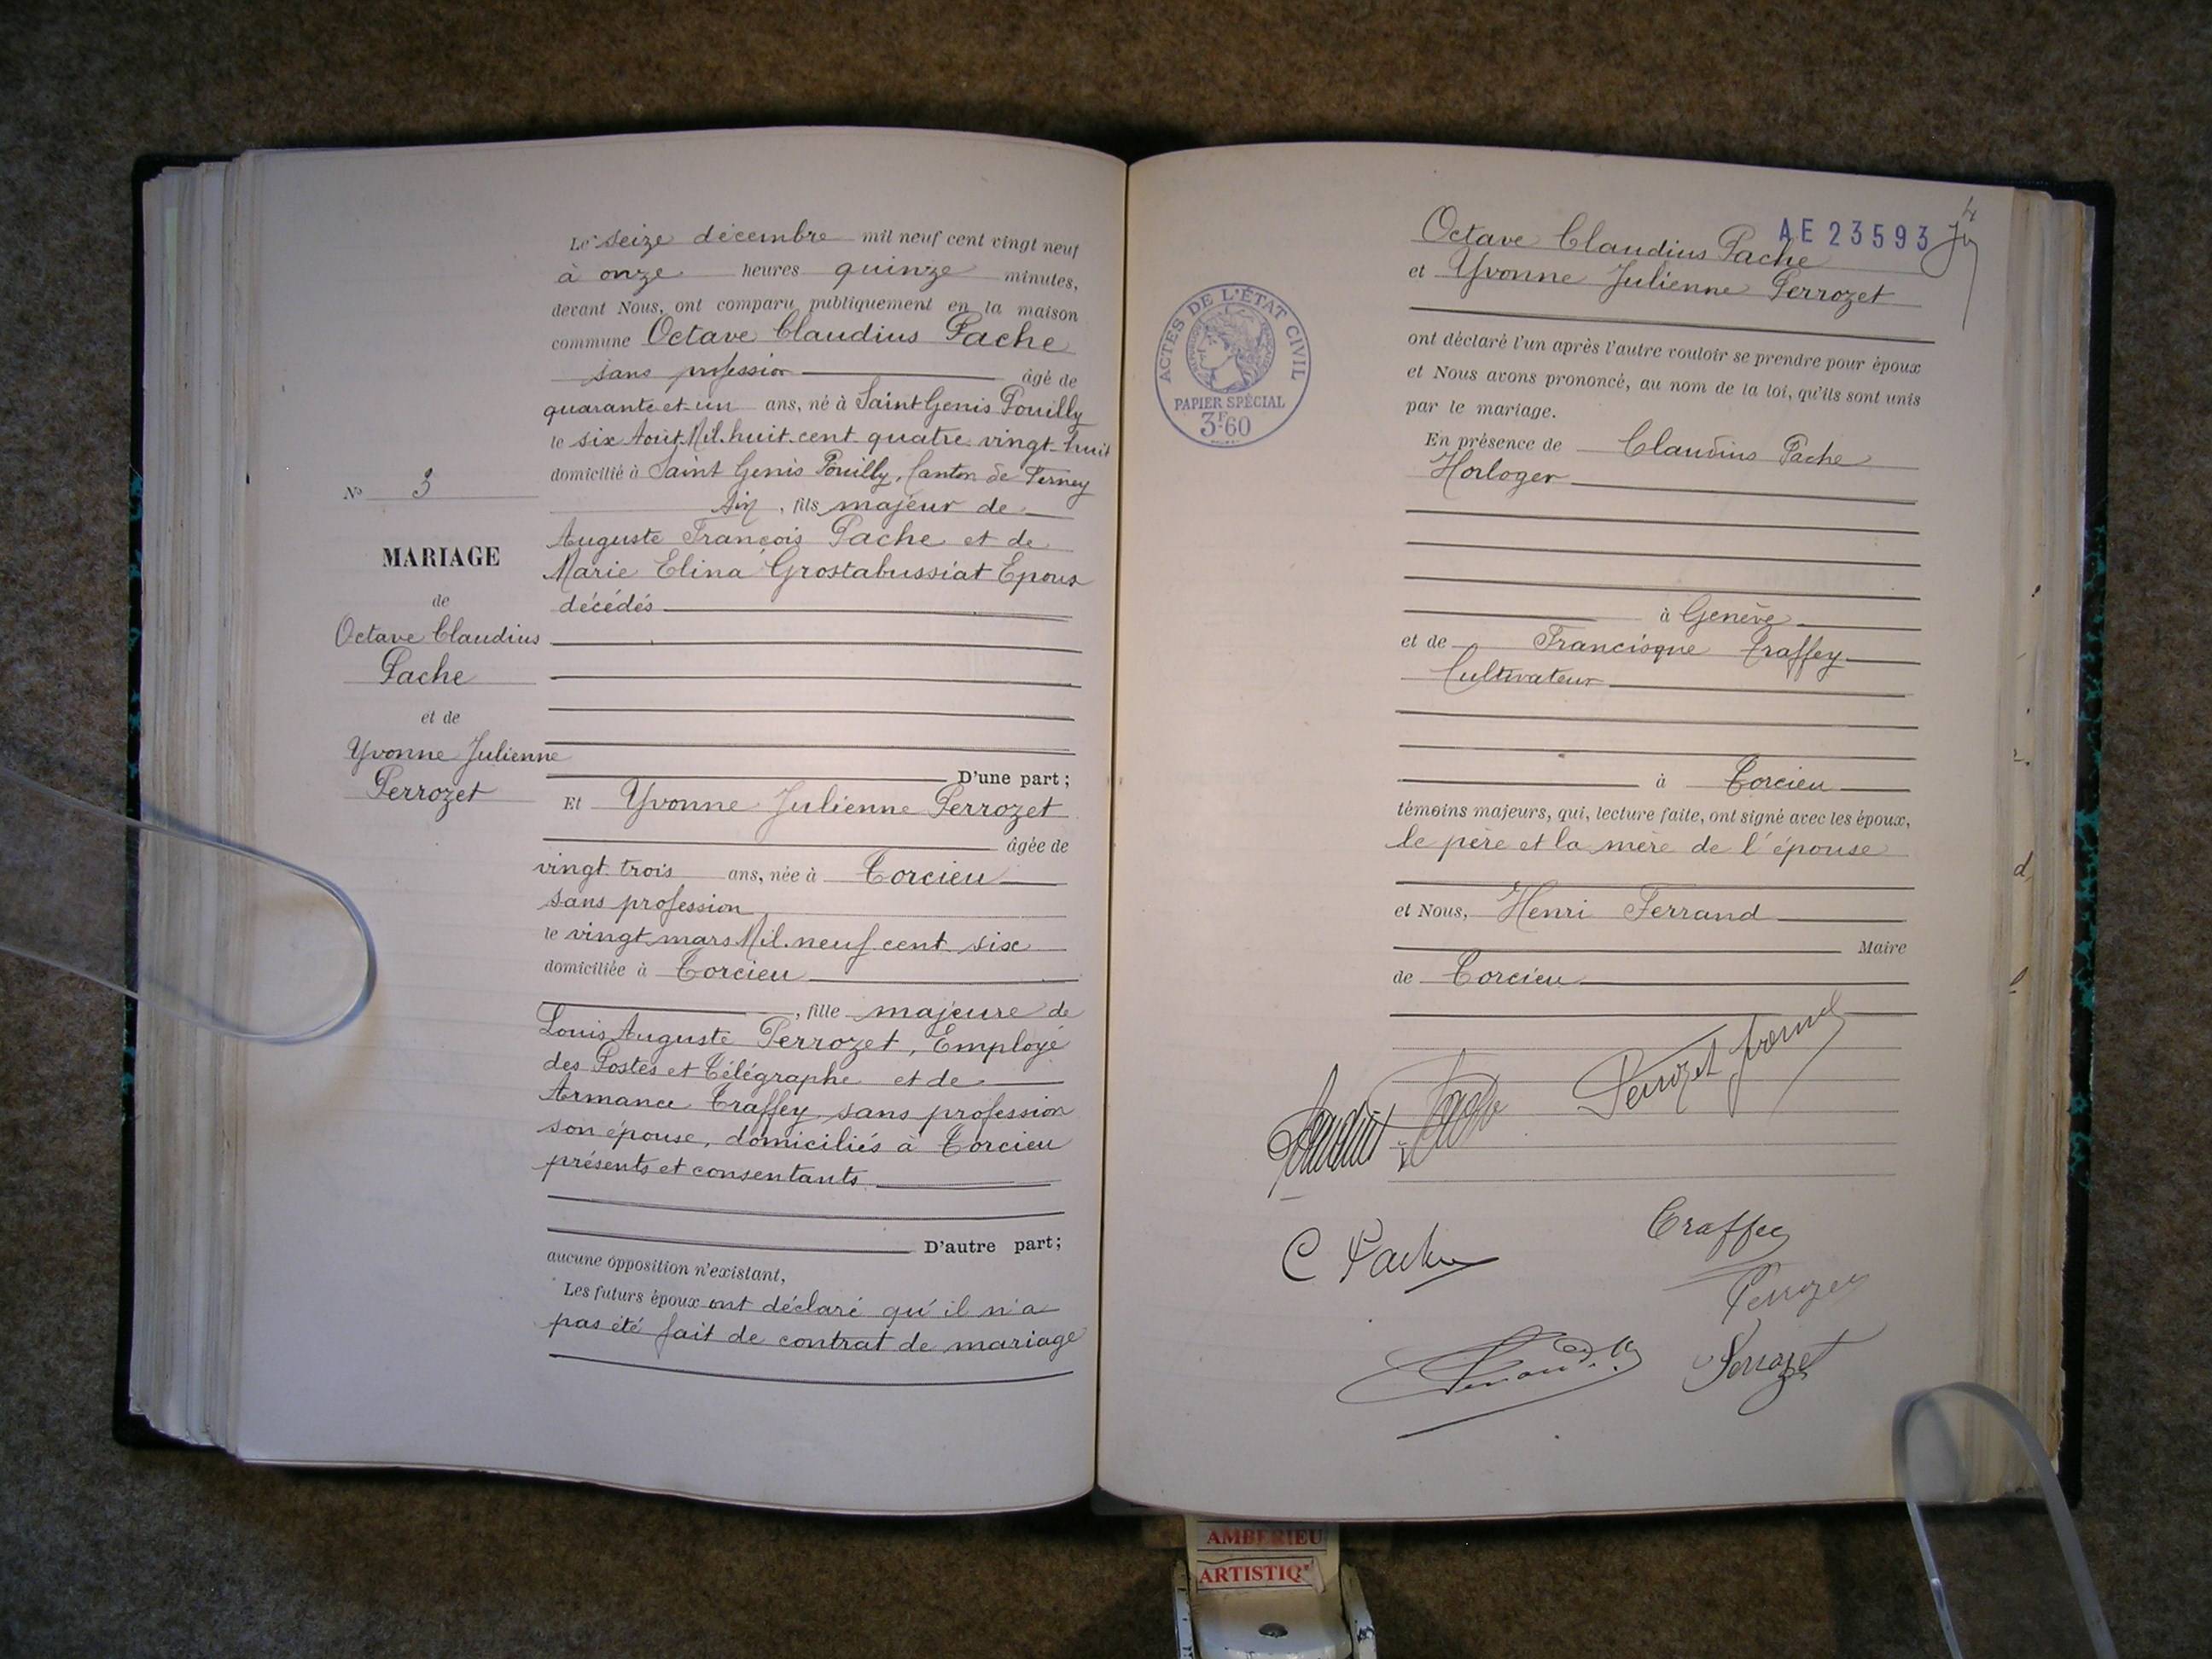 Le seize décembre mil neuf cent vingt neuf
à onze heures quinze minutes,
devant Nous, ont comparu publiquement en la maison
commune Octave Claudius Pache
sans profession âgé de
quarante et un ans, né à Saint Genis Pouilly
le six Août Mil. huit cent quatre vingt-huit
domicilié à Saint Genis Pouilly, Canton de Ferney
Ain, fils majeur de
Auguste François Pache et de
Marie Elina Grostabussiat Epoux
décédés
D'une part;
Et Yvonne Julienne Perrozet
âgée de
vingt trois ans, née à Torcieu
sans profession
le vingt mars Mil. neuf cent six
domiciliée à Torcieu
, fille majeure de
Louis Auguste Perrozet, Employé
des Postes et Télégraphe et de
Armance Traffey, sans profession
son épouse, domiciliés à Torcieu
présents et consentants
D'autre part;
aucune opposition n'existant,
Les futurs époux ont déclaré qu'il n'a
pas été fait de contrat de mariage
No 3
MARIAGE
de
Octave Claudius
Pache
et de
Yvonne Julienne
Perrozet
AE 23593
Octave Claudius Pache
et Yvonne Julienne Perrozet
ont déclaré l'un après l'autre vouloir se prendre pour époux
et Nous avons prononcé, au nom de la loi, qu'ils sont unis
par le mariage.
En présence de Claudius Pache
Horloger
à Genève
et de Francisque Traffey
Cultivateur
à Torcieu
témoins majeurs, qui, lecture faite, ont signé avec les époux,
le père et la mère de l'épouse
et Nous, Henri Ferrand
Maire
de Torcieu
Perrozet
C Pache
Traffey
Perrozet
Perrozet
ACTES DE L'ÉTAT CIVIL
PAPIER SPÉCIAL
3F60
AMBERIEU
ARTISTIQ